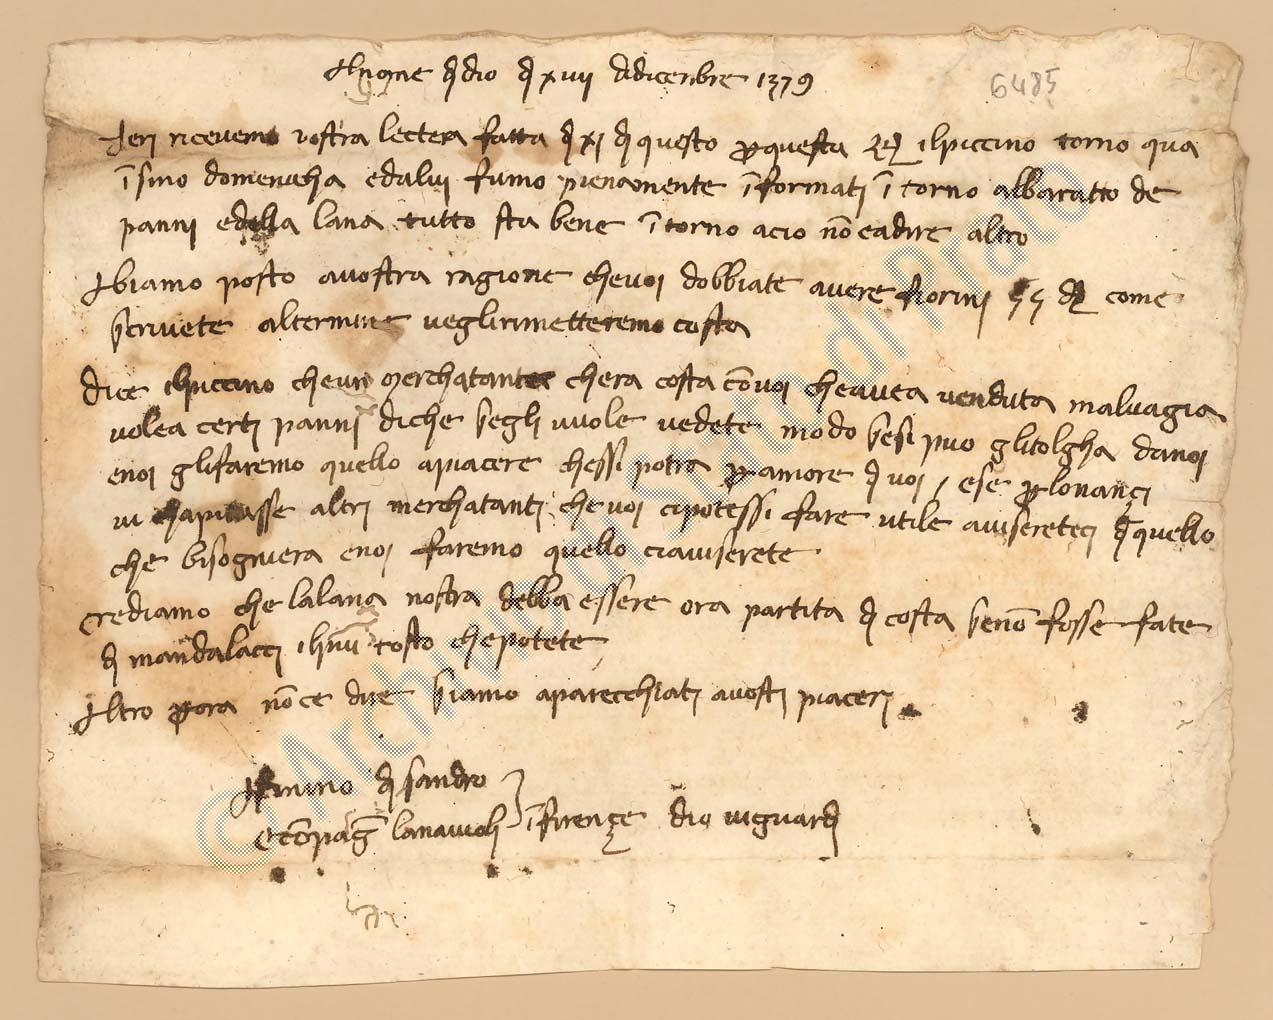 Al nome di dio di xvii di dicenbre 1379
6485
Ieri ricevemo vostra lectera fatta di xi di questo per questa il piccino torno qua
insino domenicha e da lui fumo pienamente informati intorno al baratto de
panni e della lana tutto sta bene intorno a cio non e a dire altro
Abiamo posto a vostra ragione che voi dobbiate avere fiorini come
scrivete al termine vegli rimetteremo costa
dice il piccino che un merchatante chera costa con voi che avea venduta malvagia
volea certi panni di che segli vuole vedete modo se si puo gli tolgha da noi
e noi gli faremo quello a piacere che ssi potra per amore di voi / e se per lonançi
vi chapitasse altri merchatanti che voi ci potessi fare utile aviseretecj di quello
che bisogniera e noi faremo quello ci aviserete
crediamo che la lana nostra debba essere ora partita di costa se non fosse fate
di mandalacci il piu tosto che potete
Altro per ora non ce dire siamo aparecchiati a vostri piaceri
di sandro
e conpagni lanaiuoli in firençe dio vi guardi
© Archivio di Stato di Prato